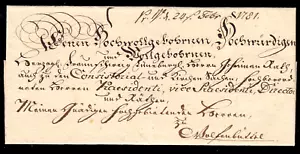 1781.
Denen Hochwollgebohrnen, Hochwürdigen
und Wollgebohrnen
Herzogl. Braunschweig Lüneburgl. Herren Geheimen Rath,
auch zu den Consistorial und Kirchen Sachen
Herren Praesidenti, vice Praesidenti, Director
und Räthen,
Meinen Gnädigen Herren
Wolfenbüttel